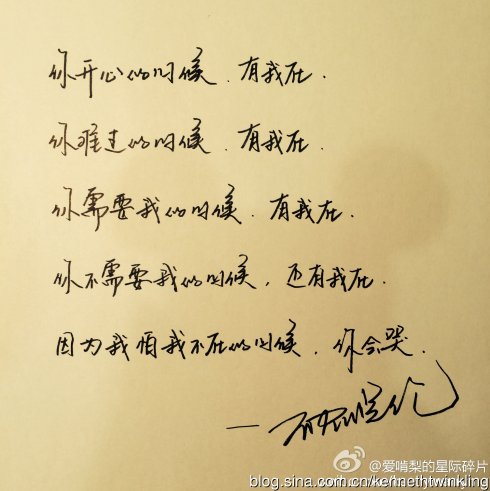 你开心的时候.有我在.
你难过的时候.有我在.
你需要我的时候.有我在.
你不需要我的时候,还有我在.
因为我怕我不在的时候.你会哭.
@爱啃梨的星际碎片
blog.sina.com.cn/kennethtwinkling